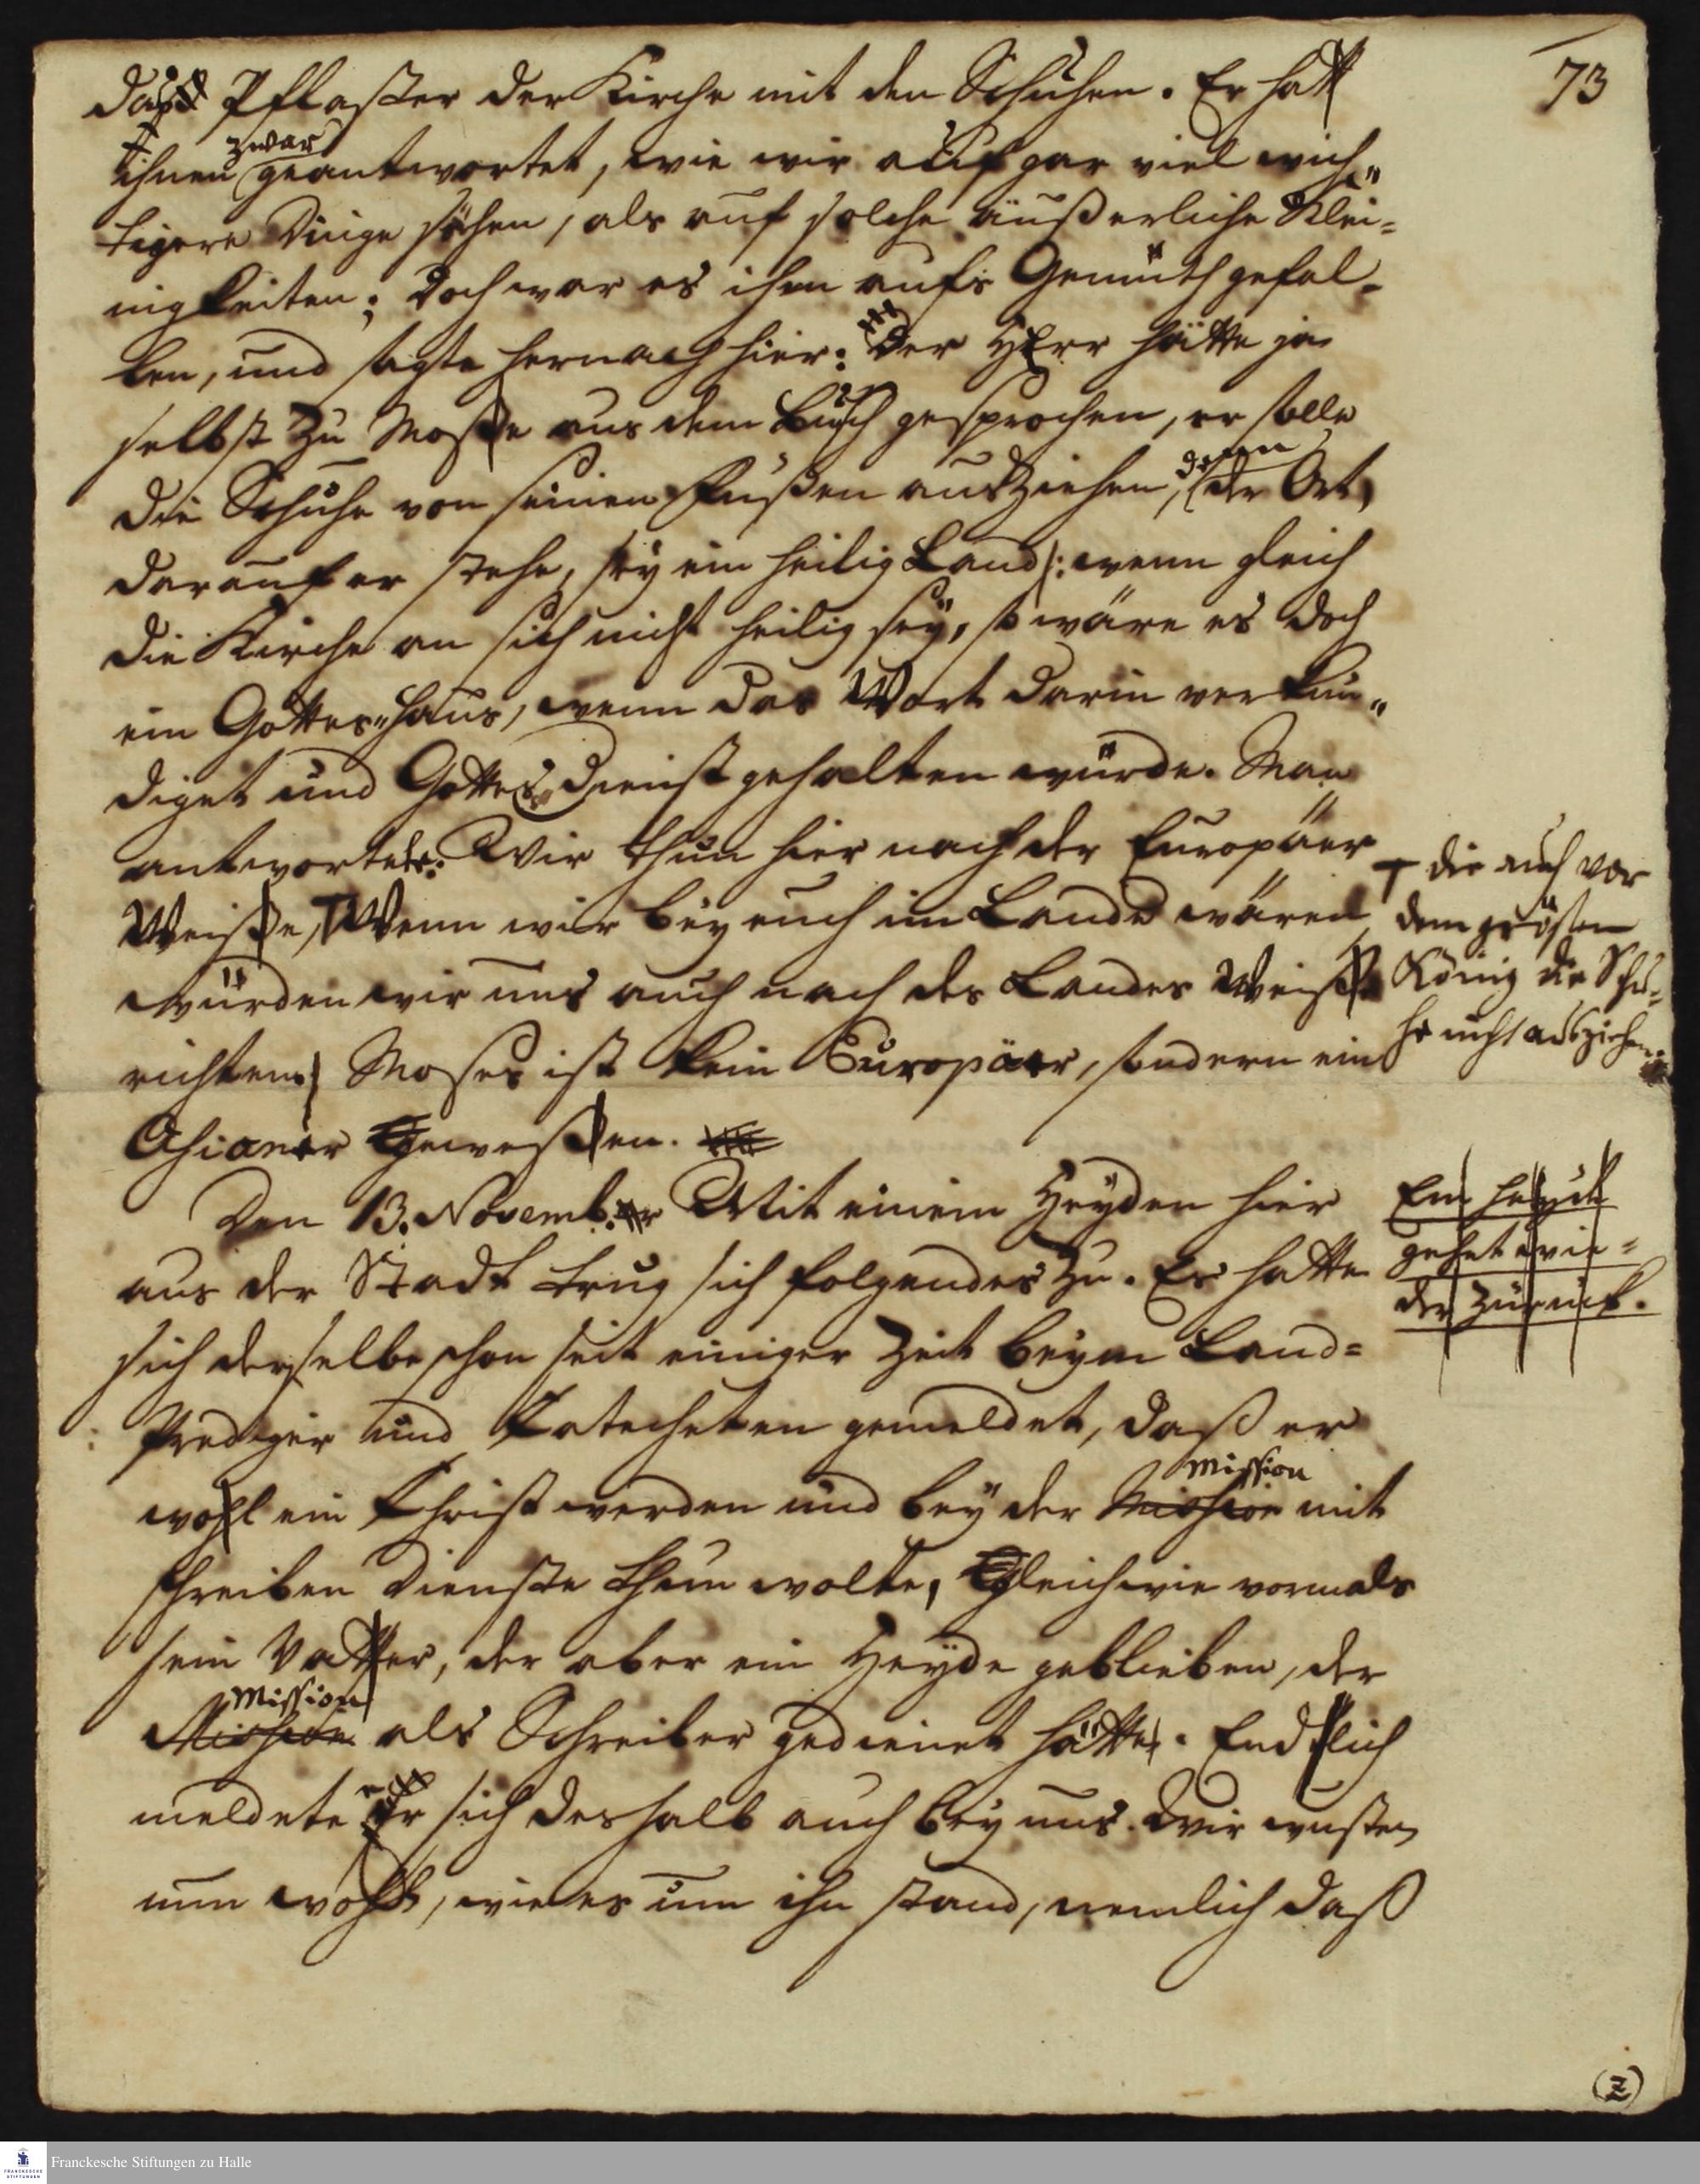 73
das Pflaster der Kirche mit den Schuhen. Er hatt
zwar
ihnen geantwortet, wie wir auf gar viel wich„
tigere Dinge sähen, als auf solche äußerliche Klei=
nigkeiten; doch war es ihm aufs Gemüth gefal-
len, und sagte hernach hier: Der HErr hätte ja
selbst zu Mose aus dem Busch gesprochen, er solle
denn
die Schuhe von seinen Füßen ausziehen, der Ort,
darauf er stehe, sey ein heilig Land: wenn gleich
die Kirche an sich nicht heilig sey, so wäre es doch
ein Gottes„Haus, wenn das Wort darin verkün„
diget und Gottes„Dienst gehalten würde. Man
antwortete: Wir thun hier nach der Europäer
Weise, Wenn wir bey euch im Lande wären
würden wir uns auch nach des Landes Weise
richten. Moses ist kein Europäer, sondern ein
Asianer gewesen.
⊤ die auch vor
dem größten
König die Schu=
he nicht ausziehen.
Den 13. Novemb. Mit einem Heyden hier
aus der Stadt trug sich folgendes zu. Es hatte
sich derselbe schon seit einiger Zeit beym Land=
Prediger und Catecheten gemeldet, daß er
Mission
wohl ein Christ werden und bey der Mission mit
schreiben Dienste thun wolte, gleichwie vormals
sein Vatter, der aber ein Heyde geblieben, der
Mission
Mission als Schreiber gedienet hätte. Endlich
meldete er sich deshalb auch bey uns. Wir wusten
nun wohl, wie es um ihn stand, nemlich daß
Ein Heyde
gehet wie=
der zurück.
(2)
Franckesche Stiftungen zu Halle
FRANCKESCHE
STIFTUNGEN